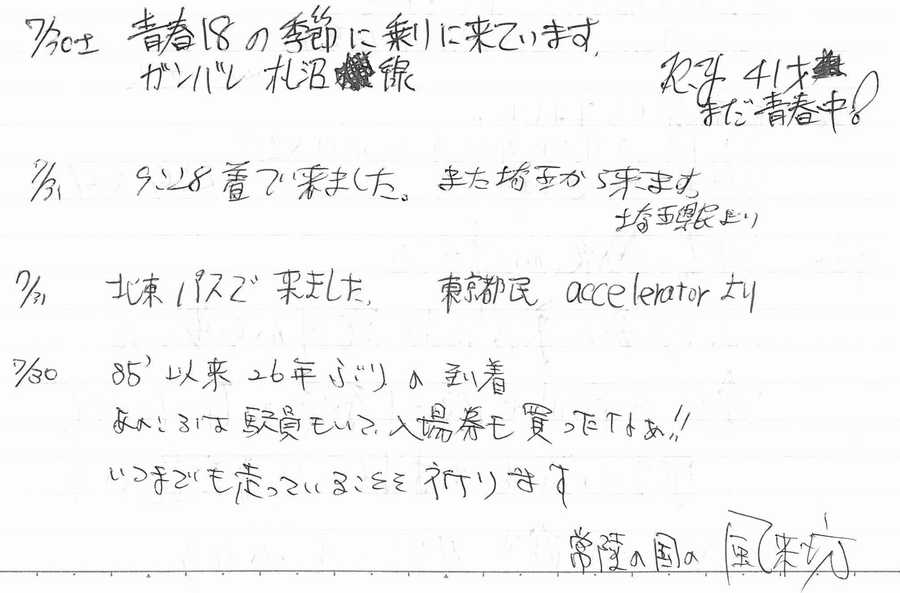 7/30土 青春18の季節に乗りに来ています。
ガンバレ 札沼線
41才
まだ青春中!
7/31 9:28着で来ました。また埼玉から来ます。
埼玉県民より
7/31 北東パスで来ました。 東京都民 acceleratorより
7/30 85'以来26年ぶりの到着
あのころは駅員もいて、入場券も買ったなぁ!!
いつまでも走っていることを祈ります
常陸の国の 風来坊